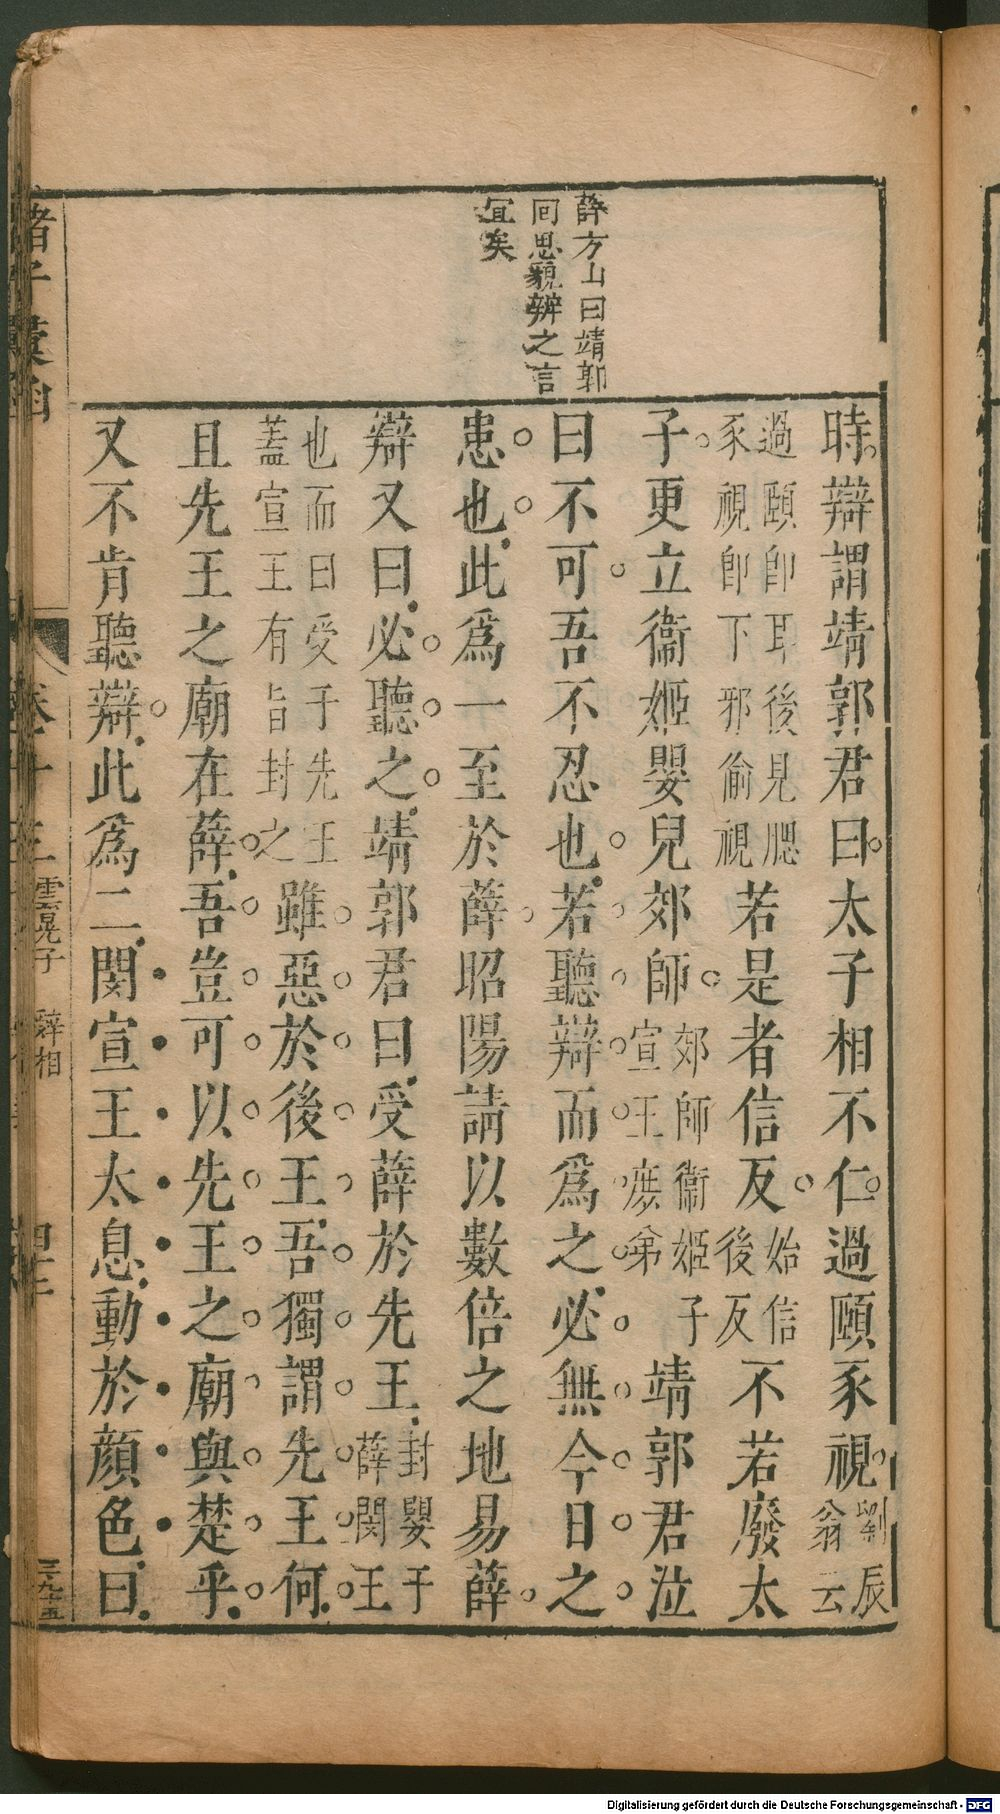 薛方山曰靖郭
同思貌辨之言
宜矣
時辯謂靖郭君曰太子相不仁過頤豕視劉辰翁云
過頤卽耳後見腮豕視卽下邪偷視若是者信反始信後反不若廢太
子更立衞姬嬰兒郊師郊師衞姬子宣王庶弟靖郭君泣
曰不可吾不忍也若聽辯而爲之必無今日之
患也此爲一至於薛昭陽請以數倍之地易薛
辯又曰必聽之靖郭君曰受薛於先王封嬰于薛閔王
也而曰受于先王蓋宣王有旨封之雖惡於後王吾獨謂先王何
且先王之廟在薛吾豈可以先王之廟與楚乎
又不肯聽辯此爲二閔宣王太息動於顏色曰
諸子彙函
雲晃子
辭相
三九十五
Digitalisierung gefördert durch die Deutsche Forschungsgemeinschaft - DFG